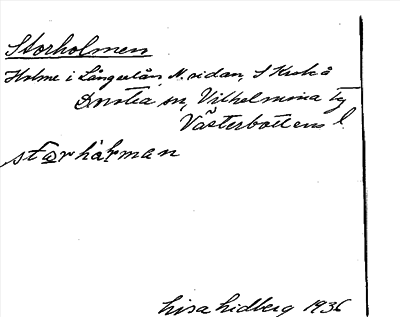 Storholmen
Holme i Långselån N. sidan, S
Dorotea sn, Vilhelmina tg
Västerbottens l.
Lisa Lidberg 1936